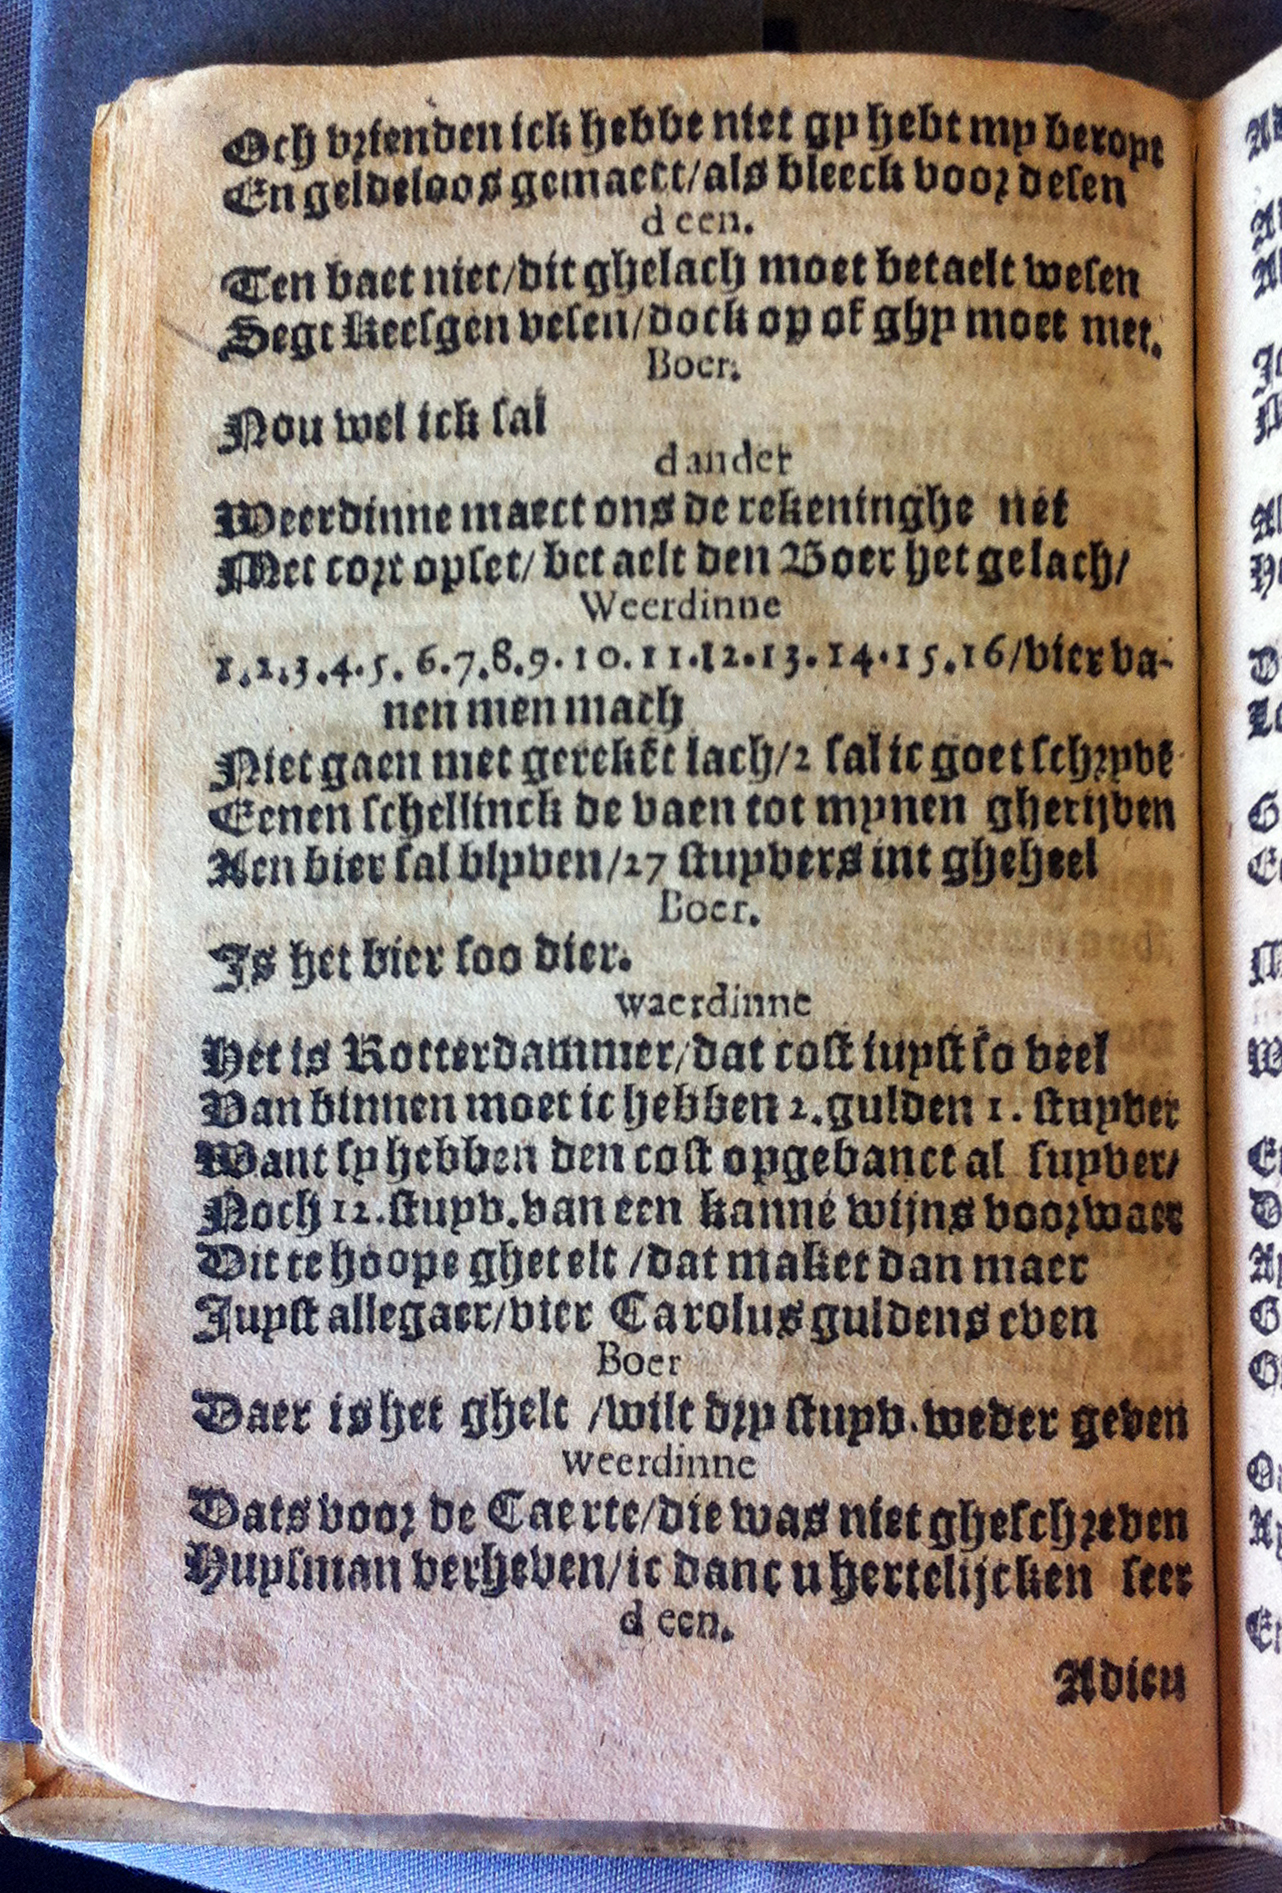 Och vrienden ick hebbe niet gy hebt my beropt
En geldeloos gemaect/als bleeck voor desen
d een.
Ten baet niet/dit ghelach moet betaelt wesen
Segt keesgen vesen/dock op of ghy moet met.
Boer.
Nou wel ick sal
d ander
Weerdinne maect ons de rekeninghe net
Met cort opset/ betaelt den Boer het gelach/
Weerdinne
1.2.3.4.5. 6.7.8.9.10.11.12.13.14.15.16/vier va-
nen men mach
Niet gaen met gerekēt lach/2 sal ic goet schryvē
Eenen schellinck de vaen tot mynen gherijven
Aen bier sal blyven/27 stuyvers int gheheel
Boer.
Is het bier soo dier.
waerdinne
Het is Rotterdammer/dat cost iuyst so veel
Van binnen moet ic hebben 2.gulden 1. stuyver
Want sy hebben den cost opgebanct al suyver/
Noch 12.stuyv.van een kanne wijns voorwaer
Dit te hoope ghetelt /dat maket dan maer
Juyst allegaer/vier Carolus guldens even
Boer
Daer is het ghelt /wilt dry stuyv.weder geven
weerdinne
Dats voor de Caerte/die was niet gheschreven
Huysman verheven/ic danc u hertelijcken seer
d een.
Adieu